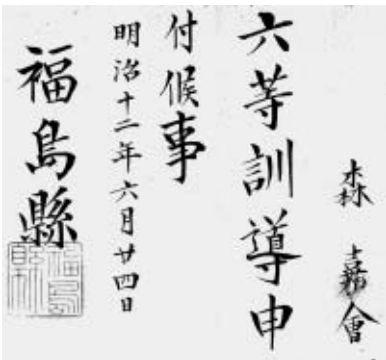 森 嘉會
六等訓導申
付候事
明治十二年六月廿四日
福島縣
福島縣